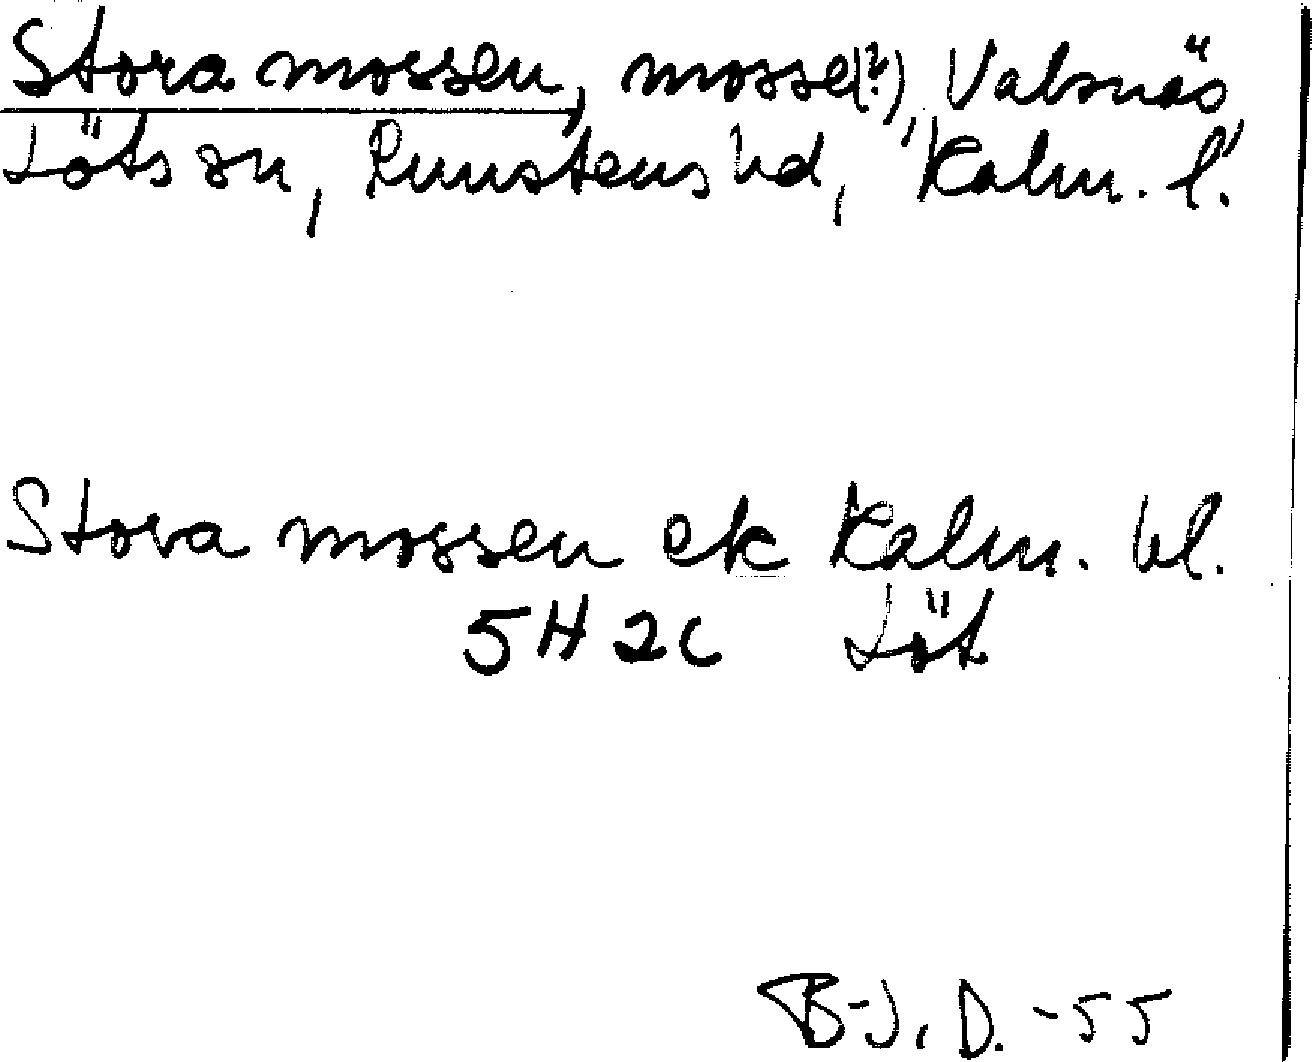 Stora mossen, mosse(?), Valsnäs
Löts sn, Runstens hd, Kalm. l.
Stora mossen ek Kalm. bl.
5H 2c Löt
B-J. D. -55